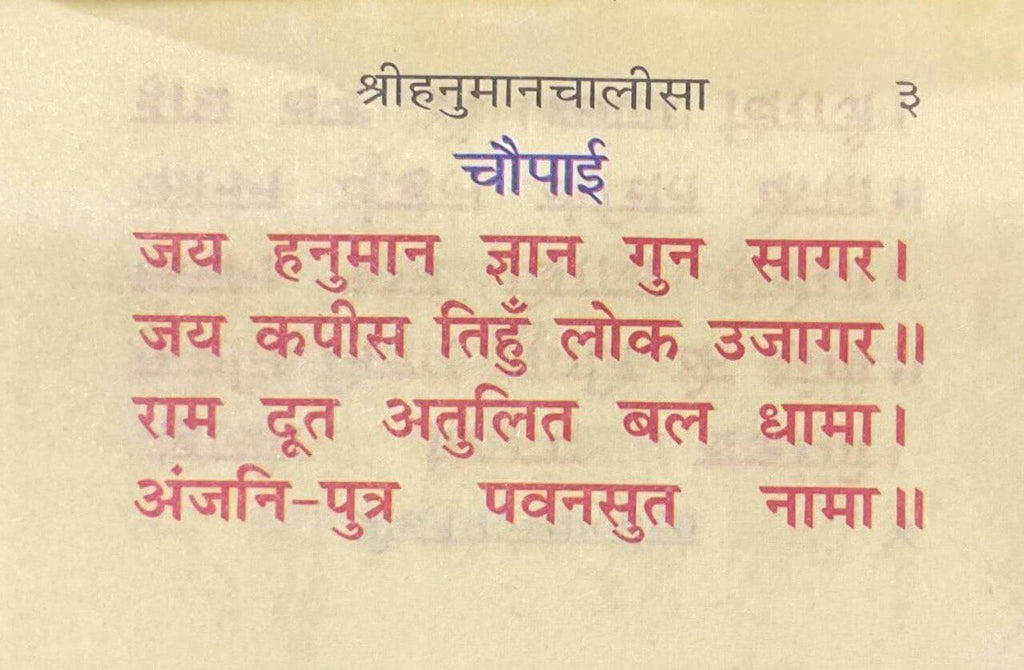 श्रीहनुमानचालीसा ३
चौपाई
जय हनुमान ज्ञान गुन सागर।
जय कपीस तिहुँ लोक उजागर॥
राम दूत अतुलित बल धामा।
अंजनि-पुत्र पवनसुत नामा॥